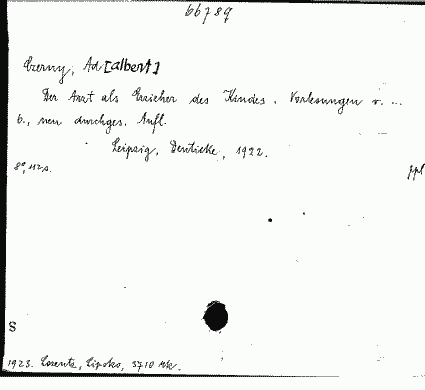 66789
Czerny, Ad[albert]
Der Arzt als Erzieher des Kindes. Vorlesungen v. ...
6., neu durchges. Aufl.
Leipzig, Deuticke, 1922.
8°, 112 s.
ppl
S
1923. Lorentz, Lipsko, 3710 Mk.